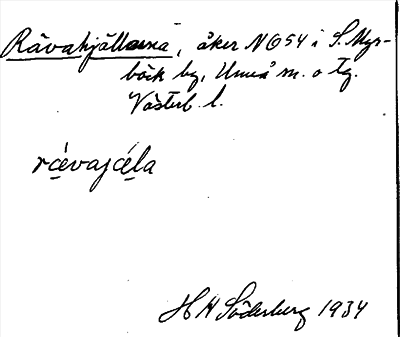 Rävahjällarna, åker No 54 i S. Myr-
bäck by, Umeå sn. o tg.
Västerb. l.
rävajäla
H H Söderberg 1934